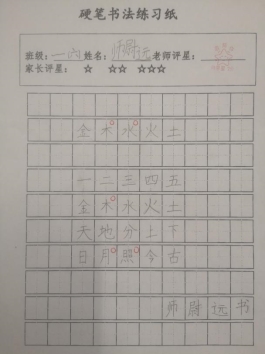 硬笔书法练习纸
班级：一六 姓名：师尉远 老师评星：
家长评星： ☆ ☆☆ ☆☆☆
金木水火土
一二三四五
金木水火土
天地分上下
日月照今古
师尉远书